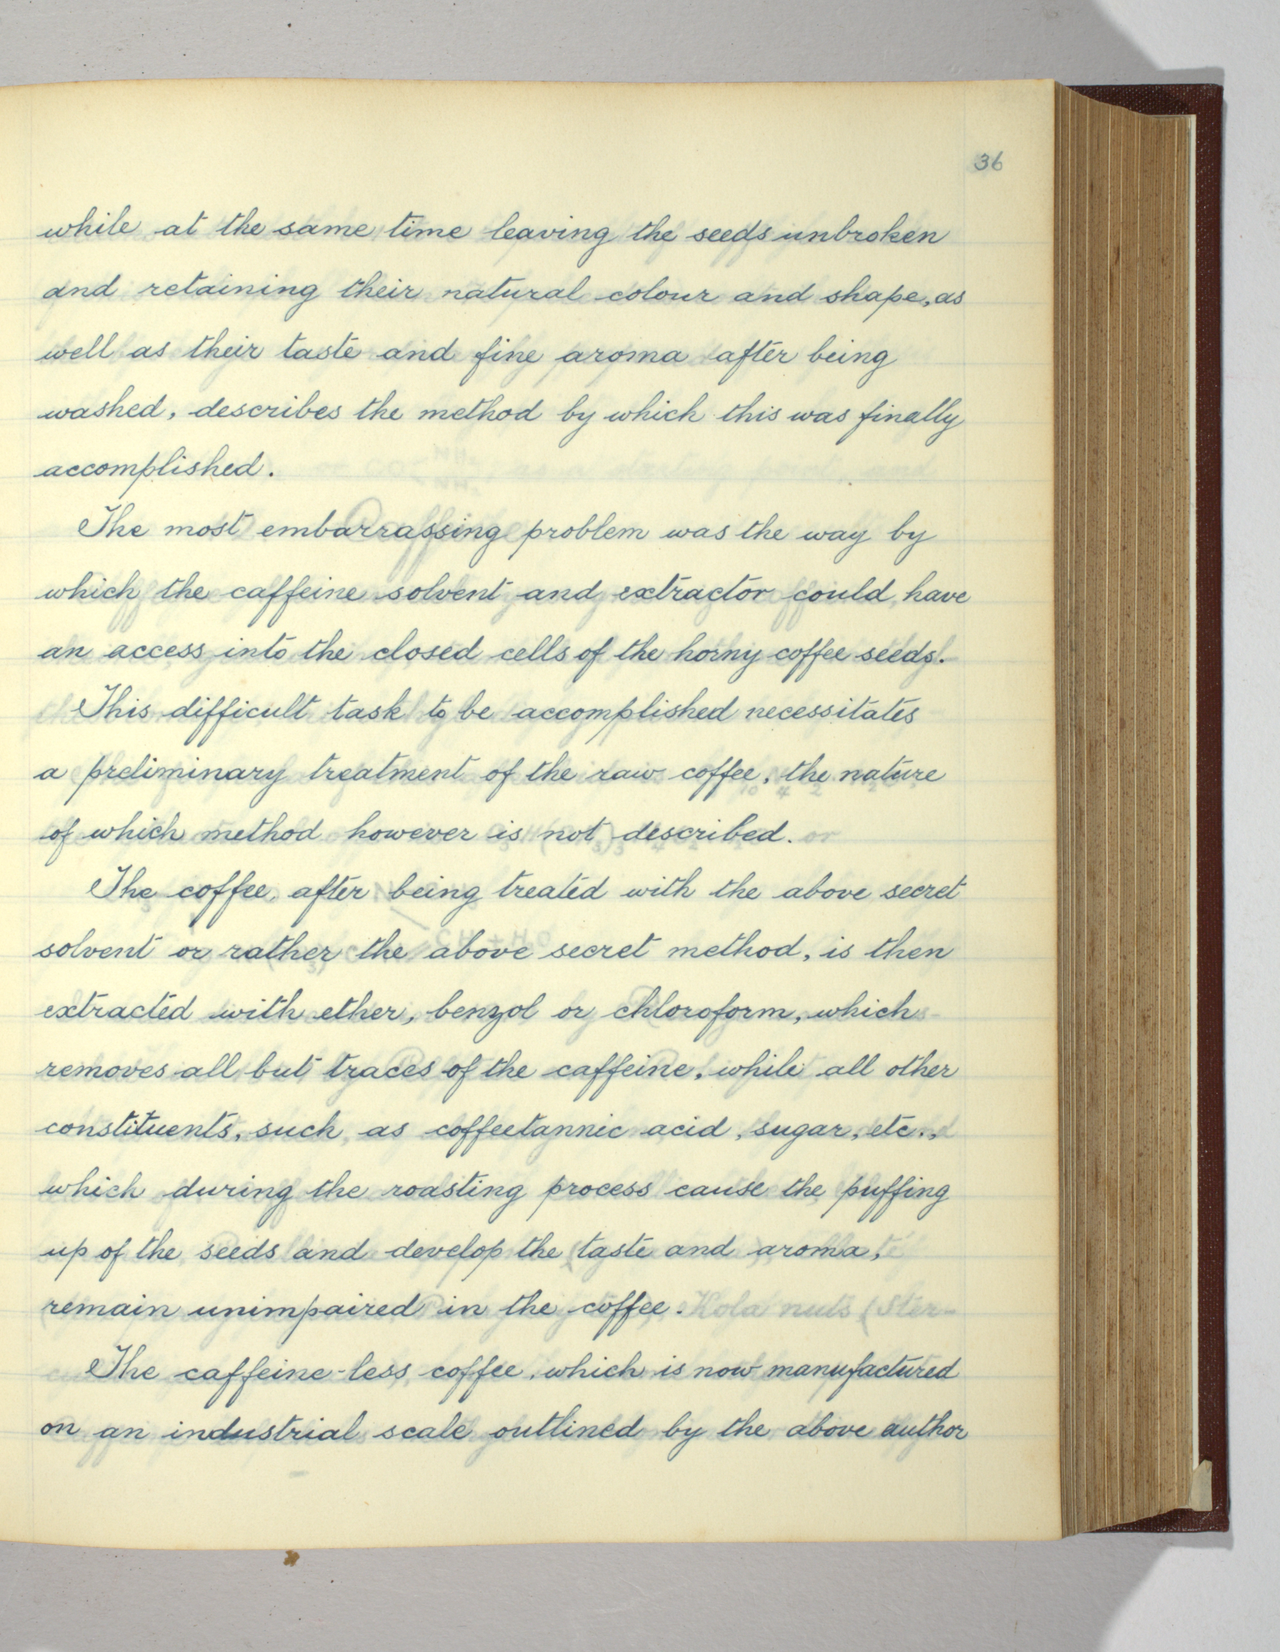 36
while at the same time leaving the seeds unbroken
and retaining their natural colour and shape, as
well as their taste and fine aroma after being
washed, describes the method by which this was finally
accomplished.
The most embarrassing problem was the way by
which the caffeine solvent and extractor could have
an access into the closed cells of the horny coffee seeds.
This difficult task to be accomplished necessitates
a preliminary treatment of the raw coffee, the nature
of which method however is not described.
The coffee, after being treated with the above secret
solvent or rather the above secret method, is then
extracted with ether, benzol or chloroform, which
removes all but traces of the caffeine, while all other
constituents, such as coffeetannic acid, sugar, etc.,
which during the roasting process cause the puffing
up of the seeds and develop the taste and aroma,
remain unimpaired in the coffee.
The caffeine-less coffee, which is now manufactured
on an industrial scale outlined by the above author